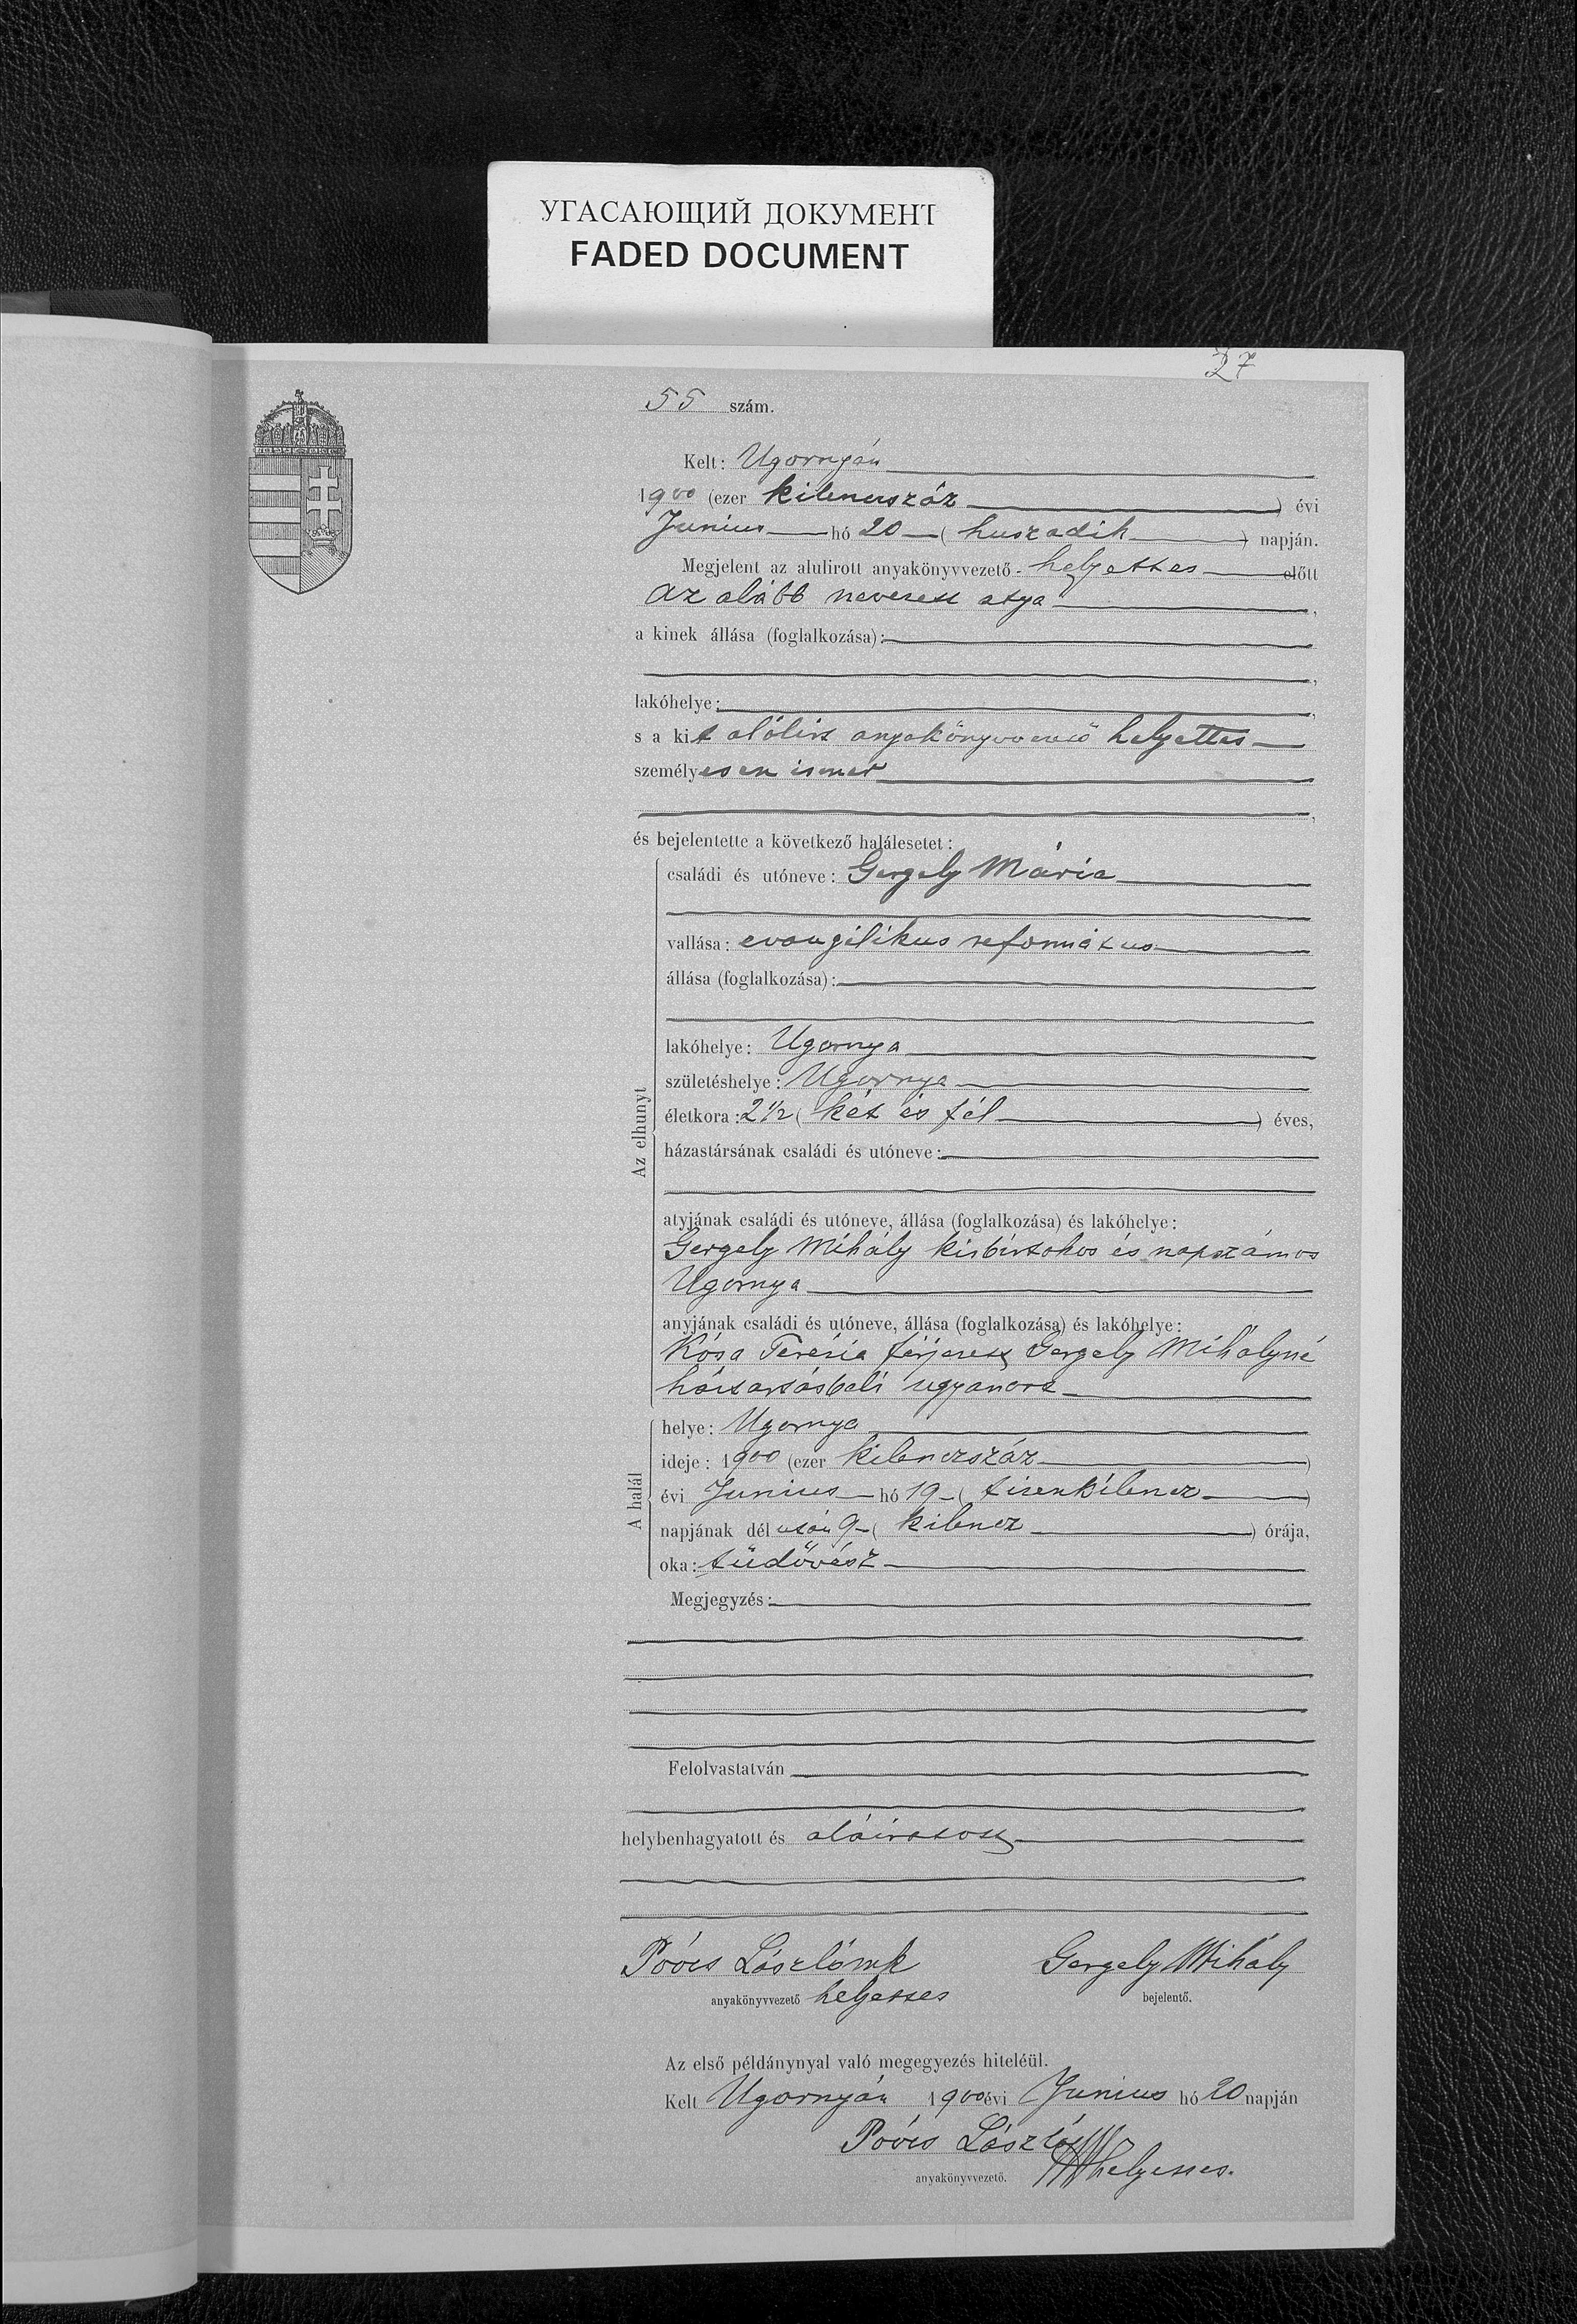 УГАСАЮЩИЙ ДОКУМЕНТ
FADED DOCUMENT
27
55 szám.
Kelt: Ugornyán
1900 (ezer kilenczszáz) évi
Junius hó 20 (huszadik) napján.
Megjelent az alulirott anyakönyvvezető - helyettes előtt
az alább nevezett atya,
a kinek állása (foglalkozása):
lakóhelye:
s a kit alólirt anyakönyvvezető helyettes
személyesen ismer
és bejelentette a következő halálesetet:
Az elhunyt
családi és utóneve: Gergely Mária
vallása: evangélikus református
állása (foglalkozása):
lakóhelye: Ugornya
születéshelye: Ugornya
életkora: 2 1/2 (két és fél) éves,
házastársának családi és utóneve:
atyjának családi és utóneve, állása (foglalkozása) és lakóhelye:
Gergely Mihály kisbirtokos és napszámos
Ugornya
anyjának családi és utóneve, állása (foglalkozása) és lakóhelye:
Kósa Terézia férjezett Gergely Mihályné
háztartásbeli ugyanott
A halál
helye: Ugornya
ideje: 1900 (ezer kilenczszáz)
évi Junius hó 19 (tizenkilencz)
napjának dél után 9 (kilencz) órája,
oka: tüdővész
Megjegyzés:
Felolvastatván
helybenhagyatott és aláiratott
László mk Gergely Mihály
anyakönyvvezető helyettes bejelentő.
Az első példánynyal való megegyezés hiteléül.
Kelt Ugornyán 1900 évi Junius hó 20 napján
László
anyakönyvvezető. helyettes.